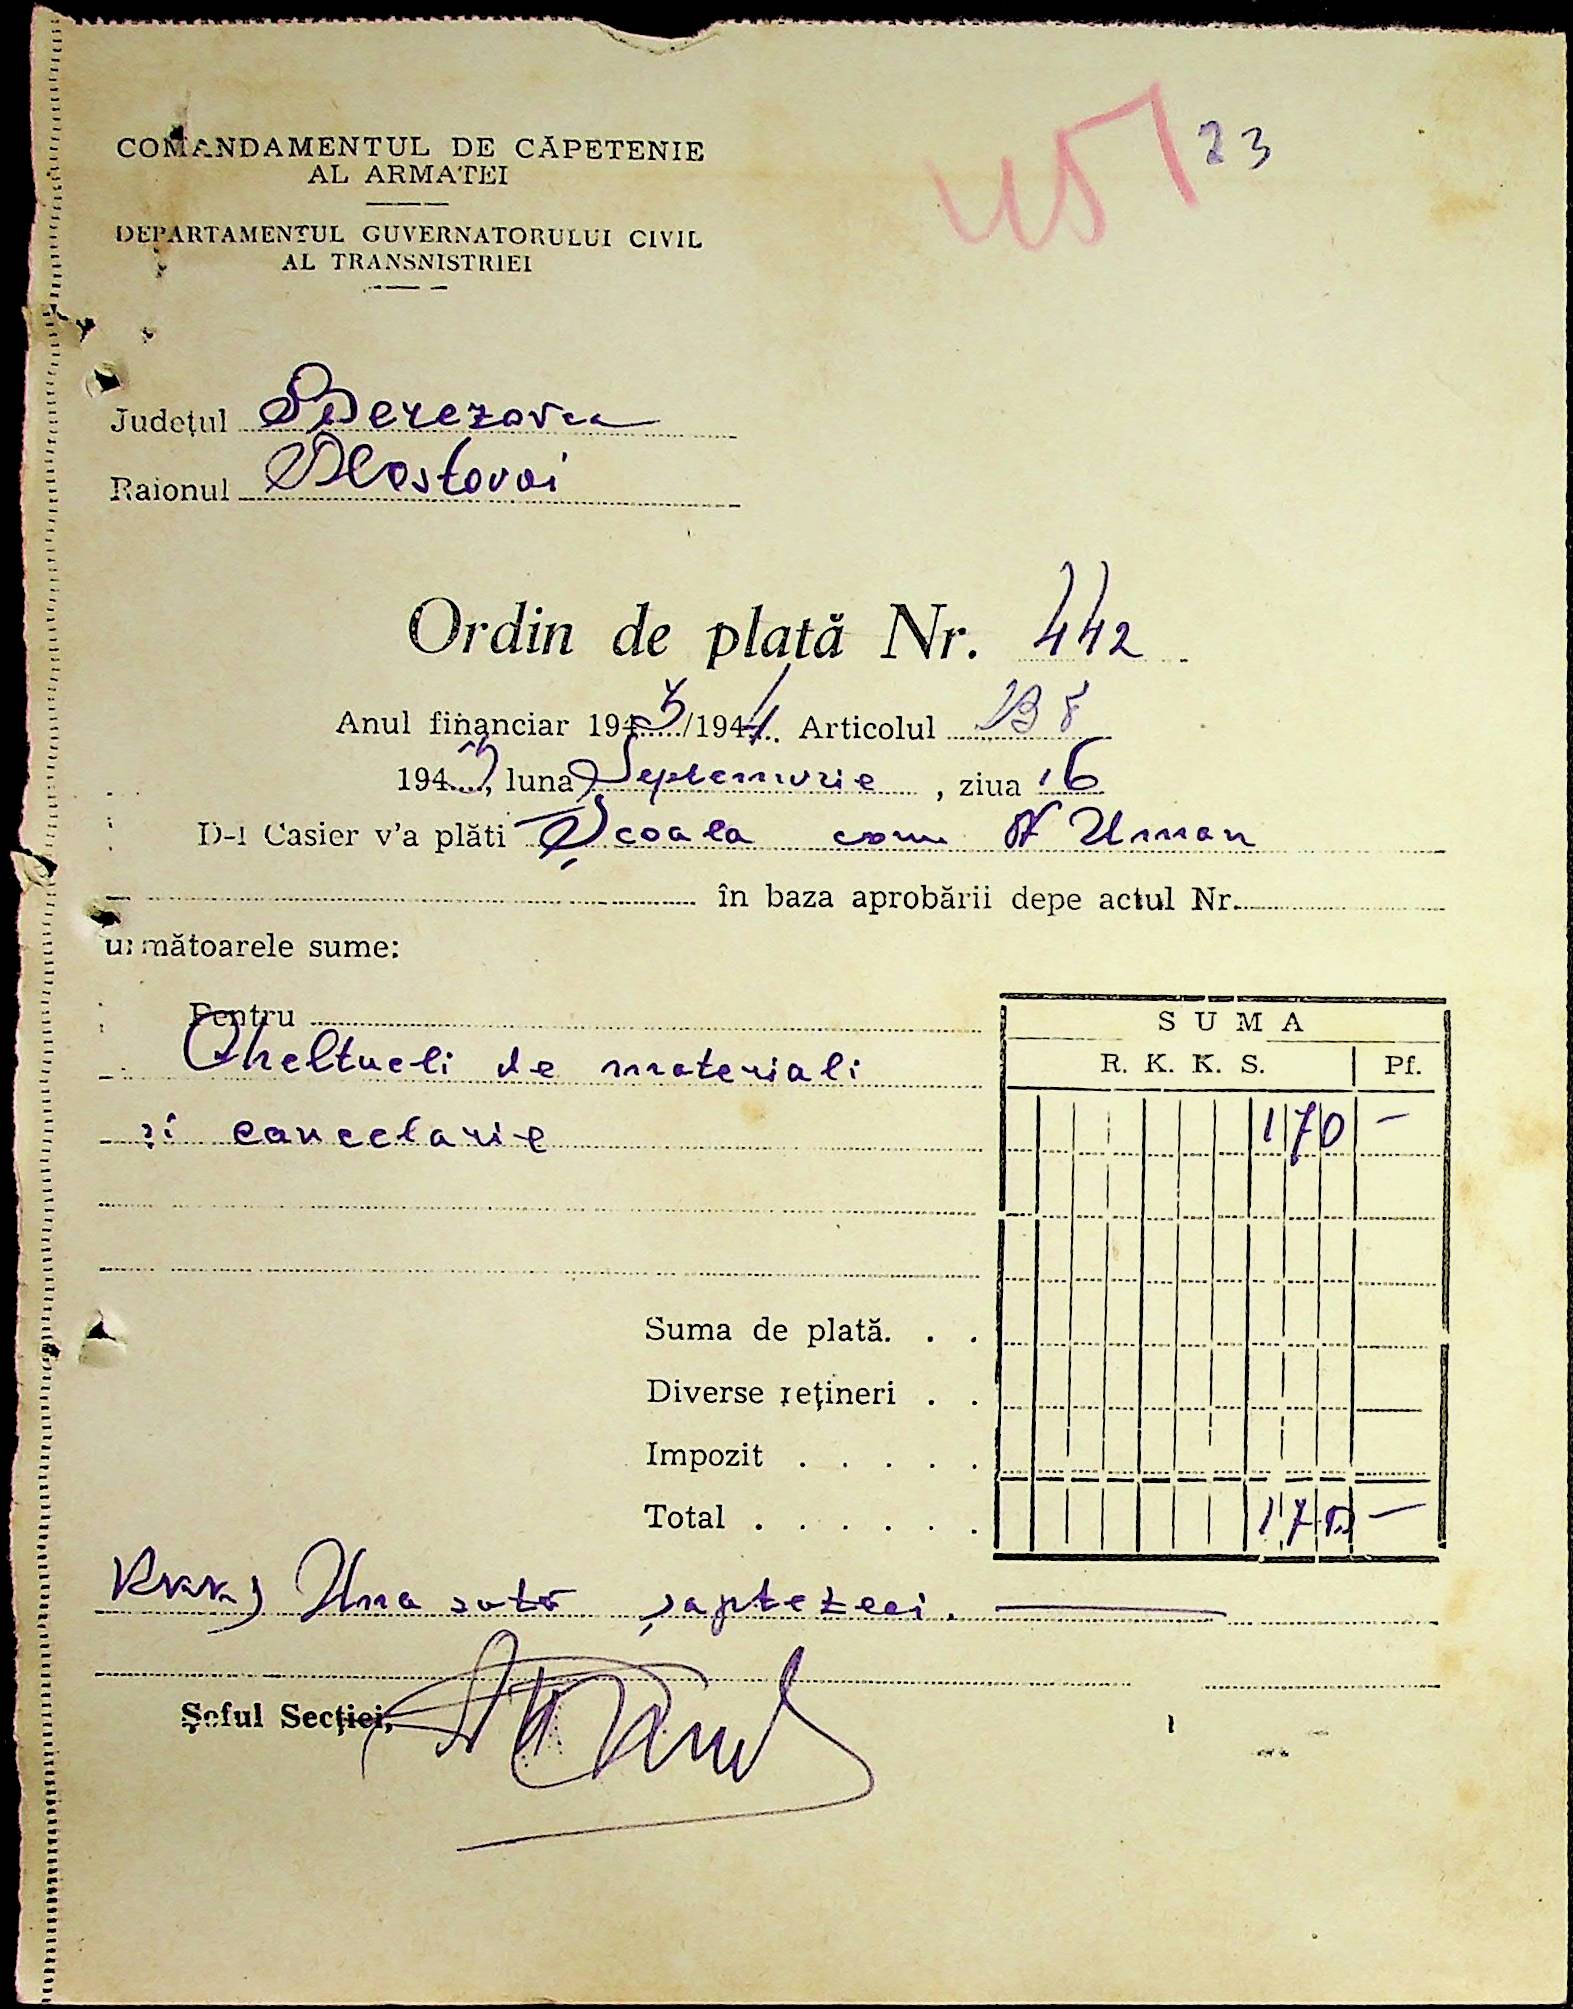 COMANDAMENTUL DE CĂPETENIE
AL ARMATEI
DEPARTAMENTUL GUVERNATORULUI CIVIL
AL TRANSNISTRIEI
23
Județul Berezovca
Raionul Mostovoi
Ordin de plată Nr. 442
Anul financiar 1943/1944. Articolul
1943, luna Septemvrie, ziua 16
D-l Casier v'a plăti Școala com N Uman
în baza aprobării depe actul Nr.
următoarele sume:
Pentru
SUMA
R. K. K. S. Pf.
Cheltueli de materiali
170 —
și cancelarie
Suma de plată. . .
Diverse rețineri . .
Impozit . . . . .
Total . . . . . . 170 —
Una sută șaptezeci. —
Șeful Secției,